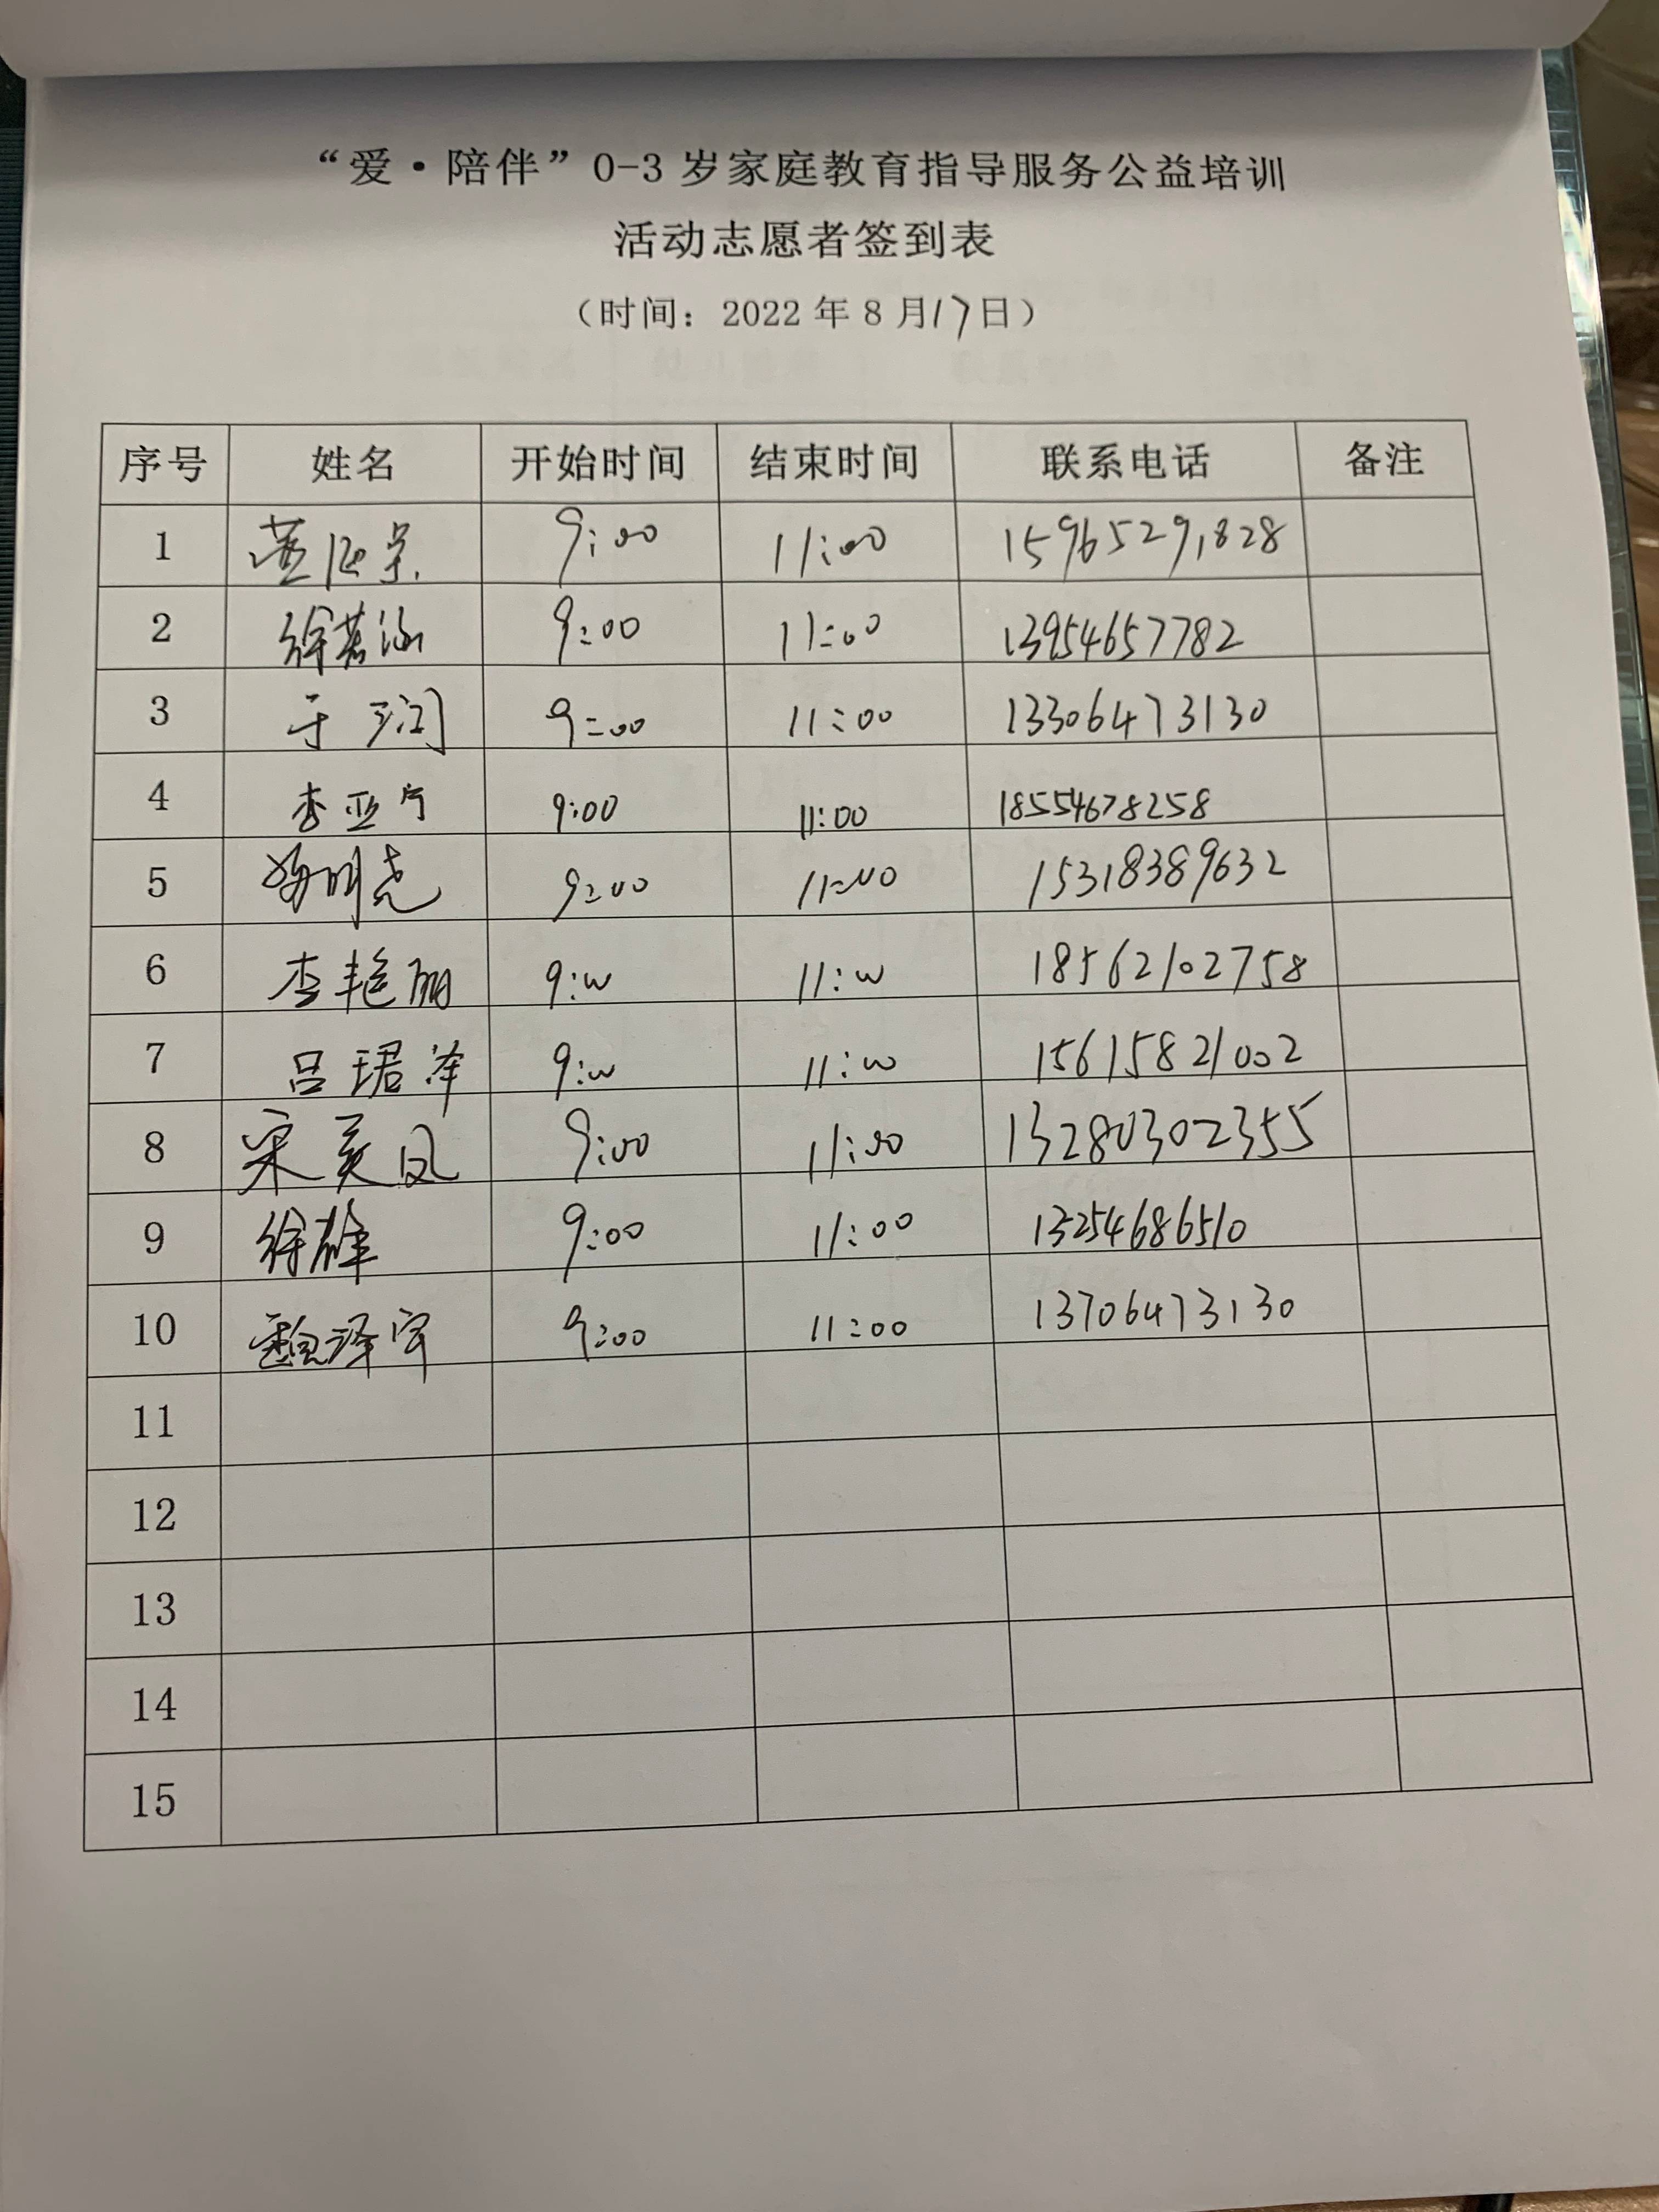 “爱·陪伴”0-3 岁家庭教育指导服务公益培训
活动志愿者签到表
（时间：2022 年 8 月17日）
序号 姓名 开始时间 结束时间 联系电话 备注
1 9:00 11:00 15965291828
2 徐茗涵 9:00 11:00 13954657782
3 于 9:00 11:00 13306473130
4 李亚宁 9:00 11:00 18554678258
5 9:00 11:00 15318389632
6 李艳丽 9:00 11:00 18562102758
7 吕珺泽 9:00 11:00 15615821002
8 宋美凤 9:00 11:00 13280302355
9 徐 9:00 11:00 13254686510
10 9:00 11:00 13706473130
11
12
13
14
15